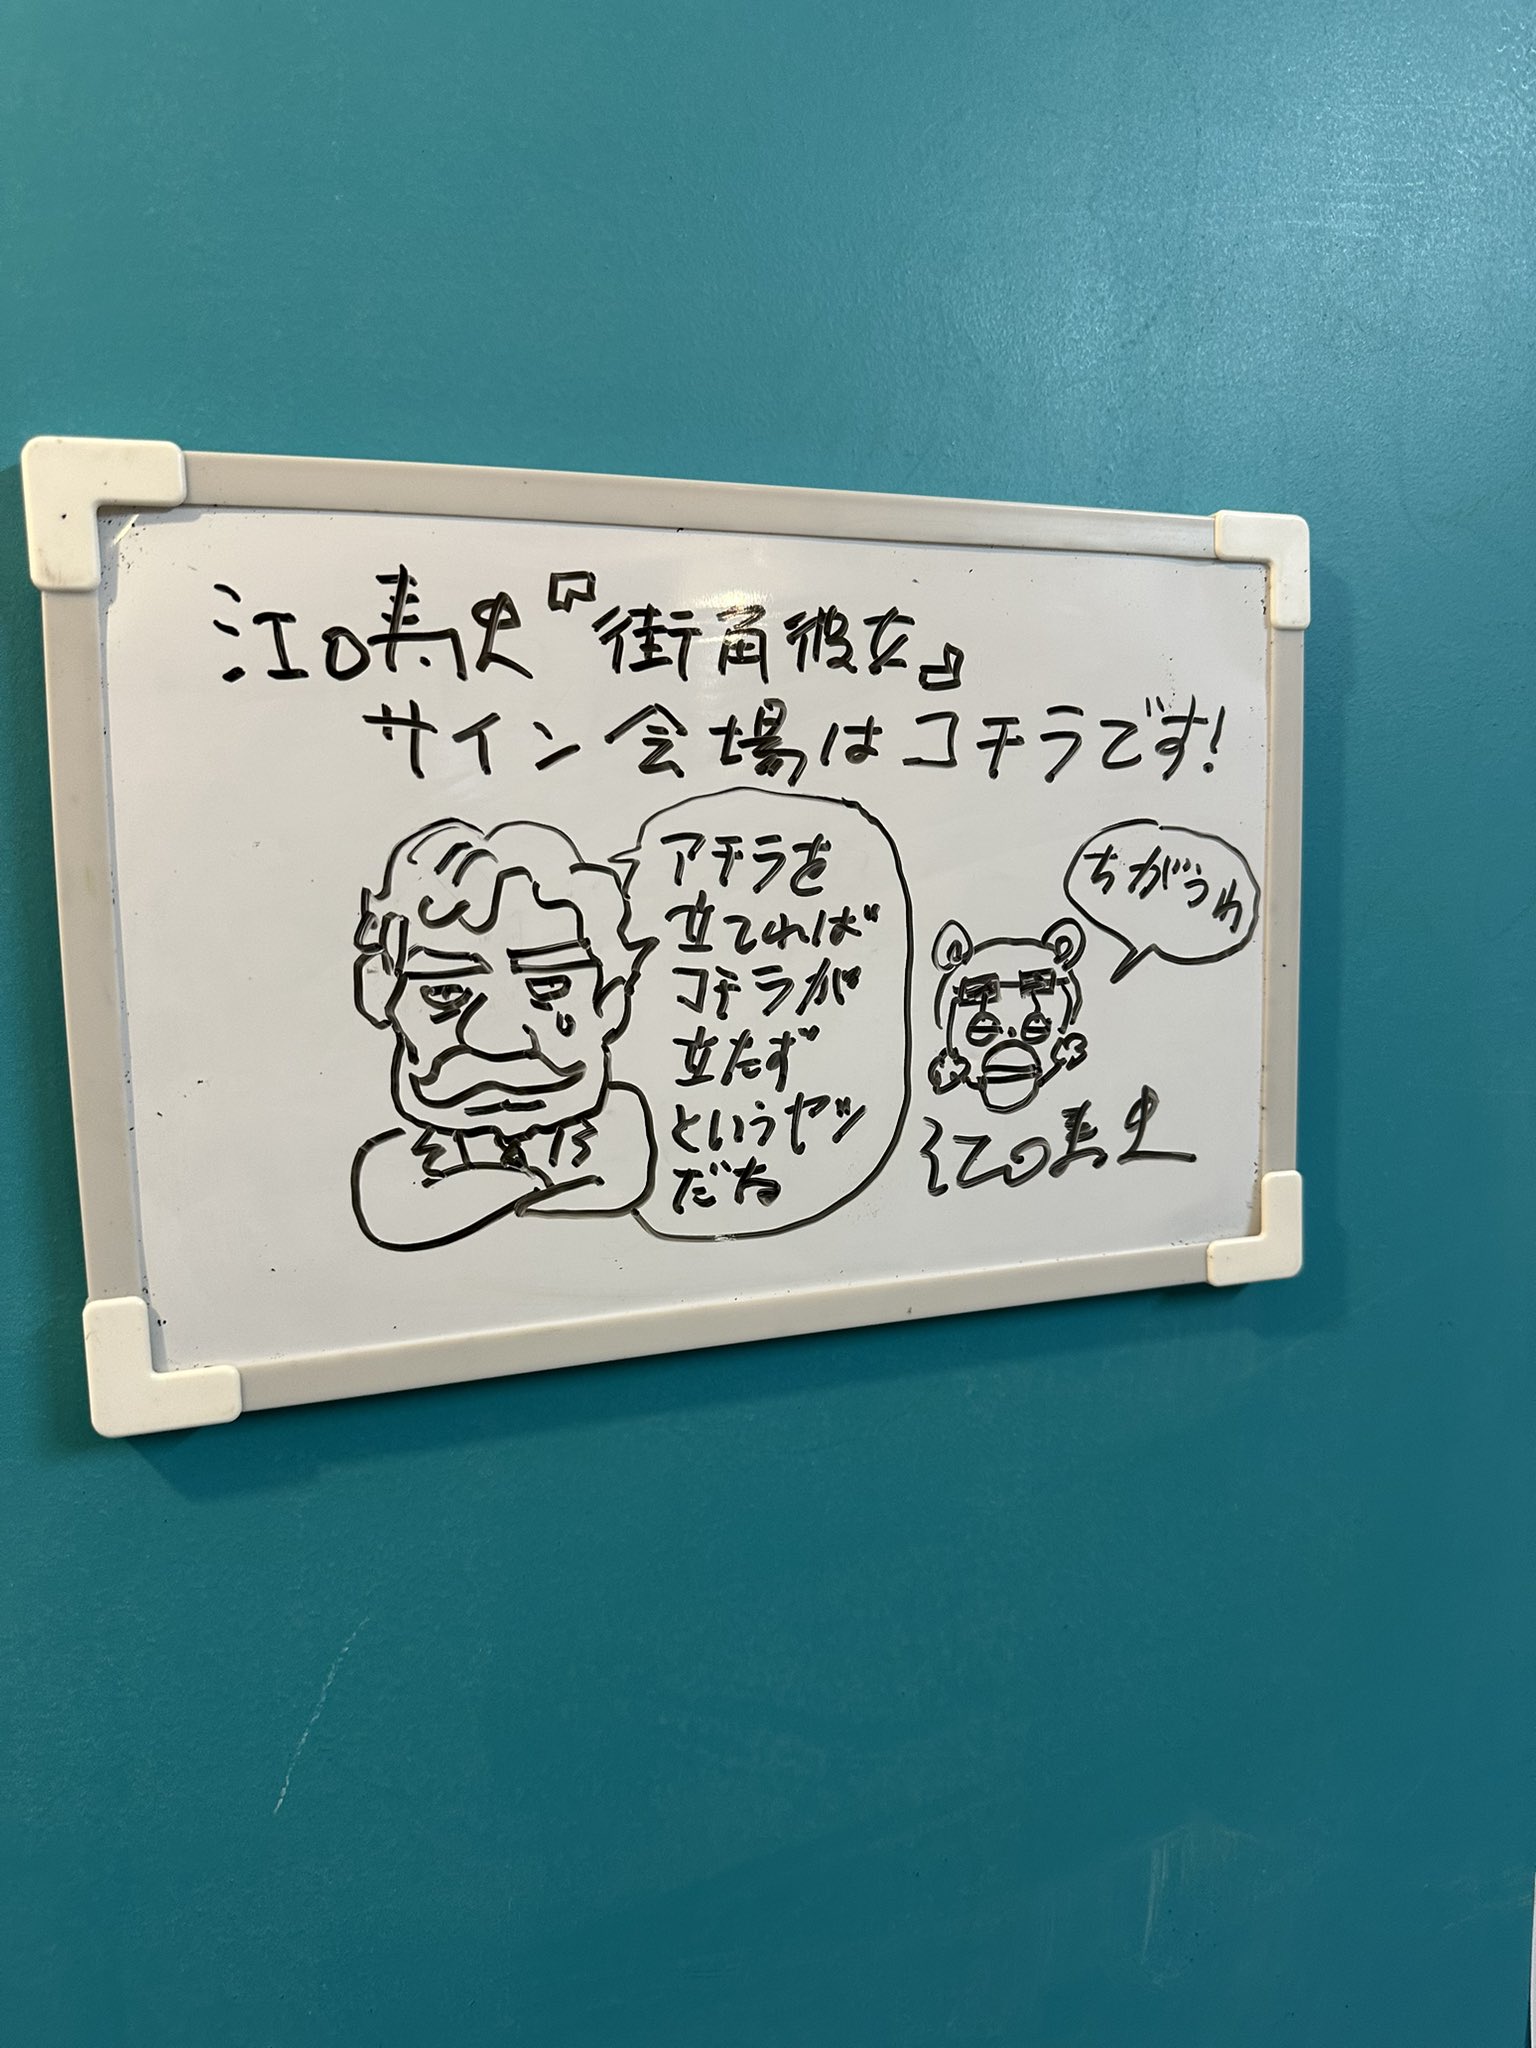 江口寿史『街角彼女』
サイン会場はコチラです!
アチラを
立てれば
コチラが
立たず
というヤツ
だね
ちがうわ
江口寿史